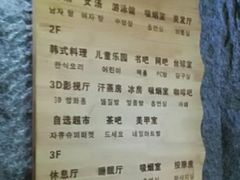 女汤 游泳馆 吸烟室
남자탕 여자탕 수영장 흡연실
2F
韩式料理 儿童乐园 书吧 网吧 台球室
한식요리 어린이 책룸 PC방 당구실
3D影视厅 汗蒸房 冰房 吸烟室 咖啡吧
3D 영화룸 찜질방 얼음방 흡연실
自选超市 茶吧 美甲室
자유슈퍼마켓 드세요 네일아트방
3F
休息厅 睡眠厅 吸烟室 按摩房